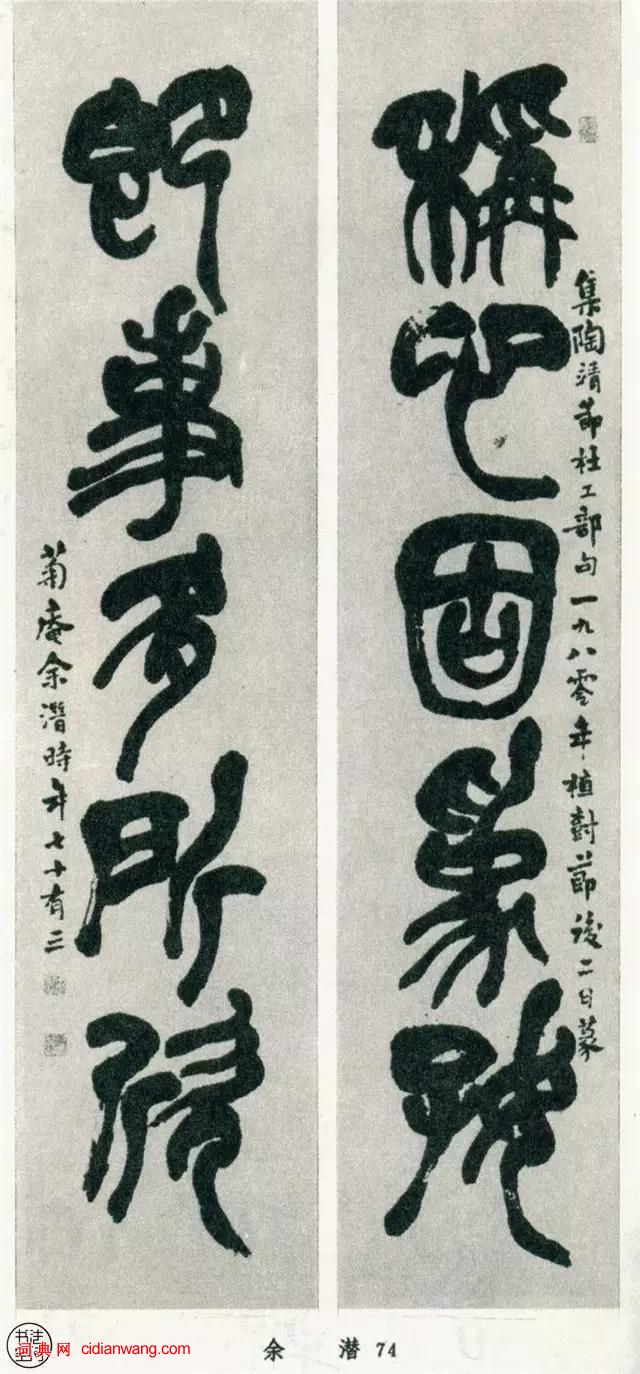 稱心固為好
集陶靖節杜工部句一九八零年植樹節後二日篆
即事多所欣
菊庵余潛時年七十有三
余 潜 74
词典网 cidianwang.com